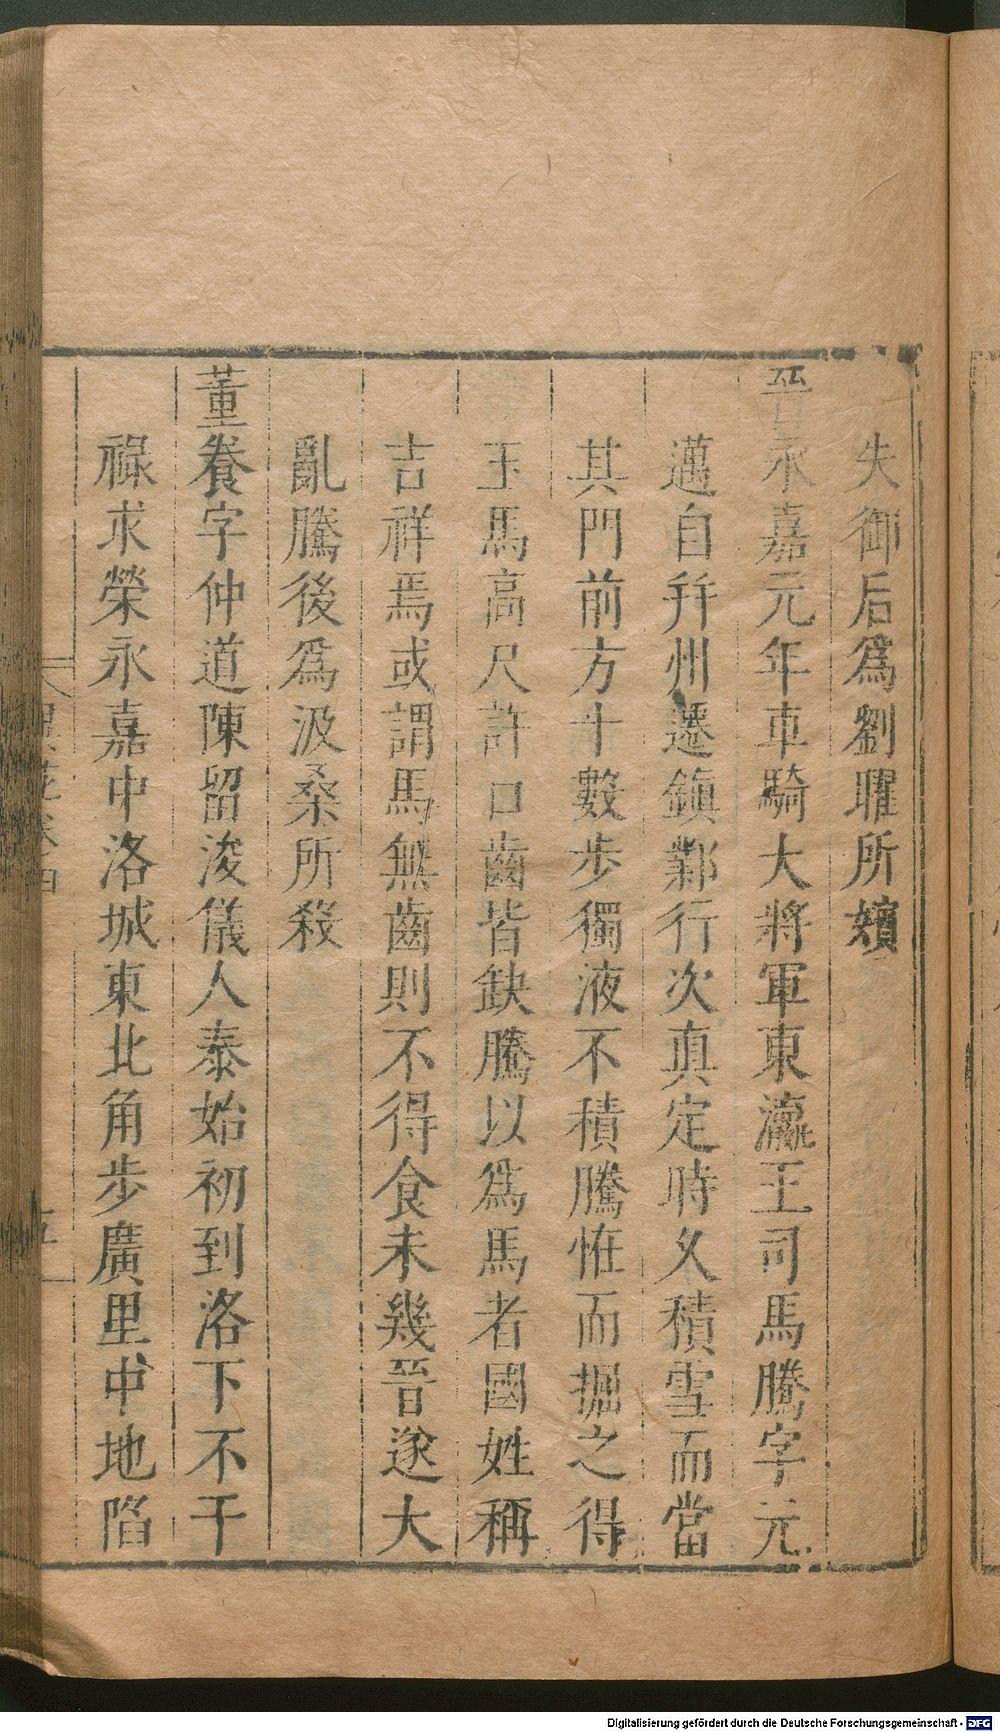 失御后爲劉曜所嬪
晉永嘉元年車騎大將軍東瀛王司馬騰字元
邁自幷州遷鎮鄴行次真定時久積雪而當
其門前方十數步獨液不積騰恠而掘之得
玉馬高尺許口齒皆缺騰以爲馬者國姓稱
吉祥焉或謂馬無齒則不得食未幾晉遂大
亂騰後爲汲桑所殺
董養字仲道陳留浚儀人泰始初到洛下不干
祿求榮永嘉中洛城東北角步廣里中地陷
Digitalisierung gefördert durch die Deutsche Forschungsgemeinschaft - DFG